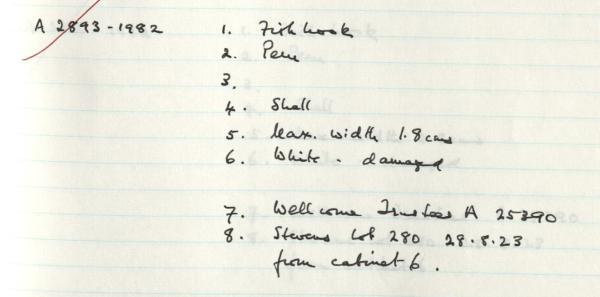 A 2893-1982 1. Fish hook
2. Peru
3.
4. Shell
5. Max. width 1.8 cms
6. White. damaged
7. Wellcome Trustees A 25390
8. Stevens Lot 280 28.8.23
from cabinet 6.